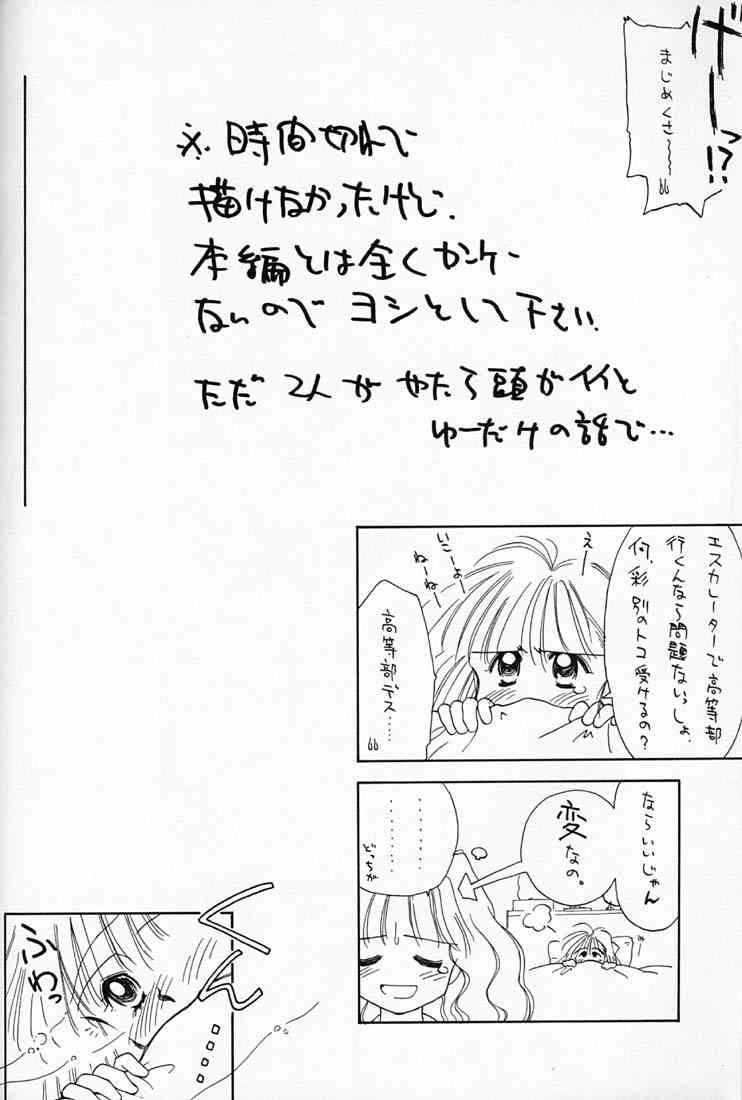 げーっ!?
まじめくさ〜〜〜
※時間切れで
描けなかったけど、
本編とは全くカンケー
ないのでヨシとして下さい。
ただ2人がやたら頭がイイと
ゆーだけの話で…
エスカレーターで高等部
行くんなら問題ないっしょ、
何、彩別のトコ受けるの?
えー
いこーよー
ねーねー
高等部デス……
ならいいじゃん
変
なの。
………
………
どっちが
くくん
ふわっ